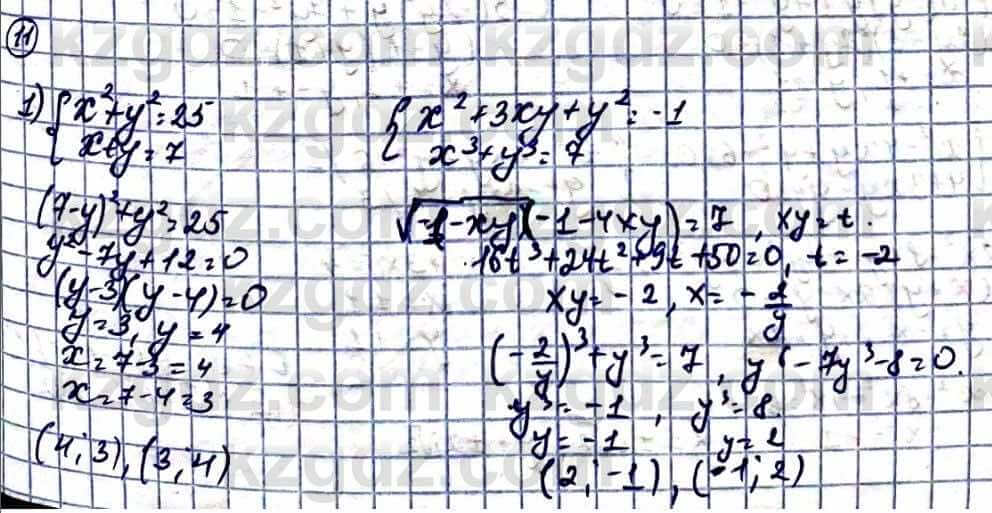 11
1) { x² + y² = 25
x + y = 7
(7-y)² + y² = 25
y² - 7y + 12 = 0
(y-3)(y-4) = 0
y = 3, y = 4
x = 7-3 = 4
x = 7-4 = 3
(4; 3), (3; 4)
{ x² + 3xy + y² = -1
x³ + y³ = 7
√-1-xy (-1-4xy) = 7, xy = t.
16t³ + 24t² + 9t + 50 = 0, t = -2
xy = -2, x = -2/y
(-2/y)³ + y³ = 7, y⁶ - 7y³ - 8 = 0.
y³ = -1, y³ = 8
y = -1 y = 2
(2; -1), (-1; 2)
kzgdz.com